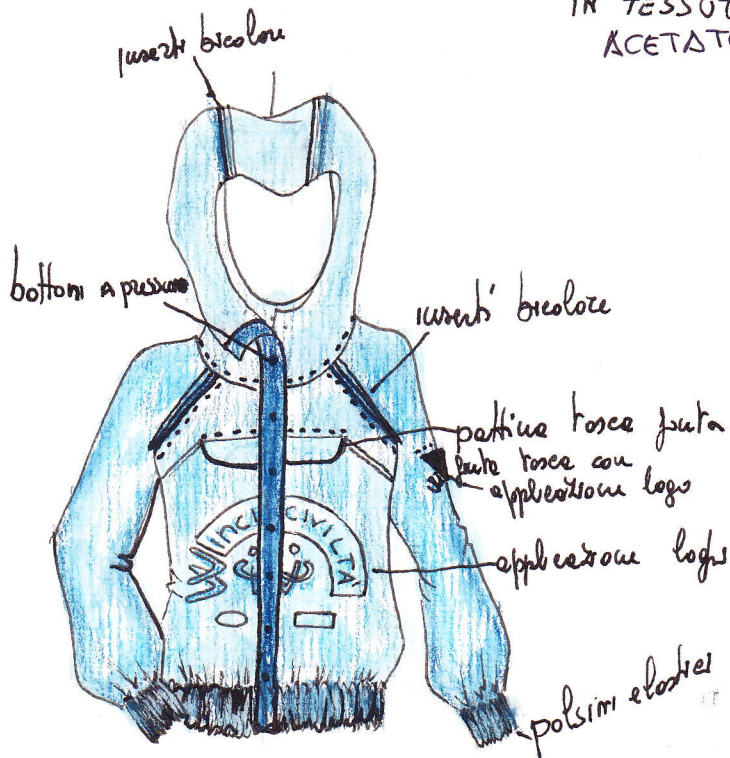 IN TESSUT
ACETAT
inserti bicolore
bottoni a pressione
inserti bicolore
pattina tasca finta
finta tasca con
applicazione logo
WINCI CIVILTÀ
applicazione loghi
polsini elastici